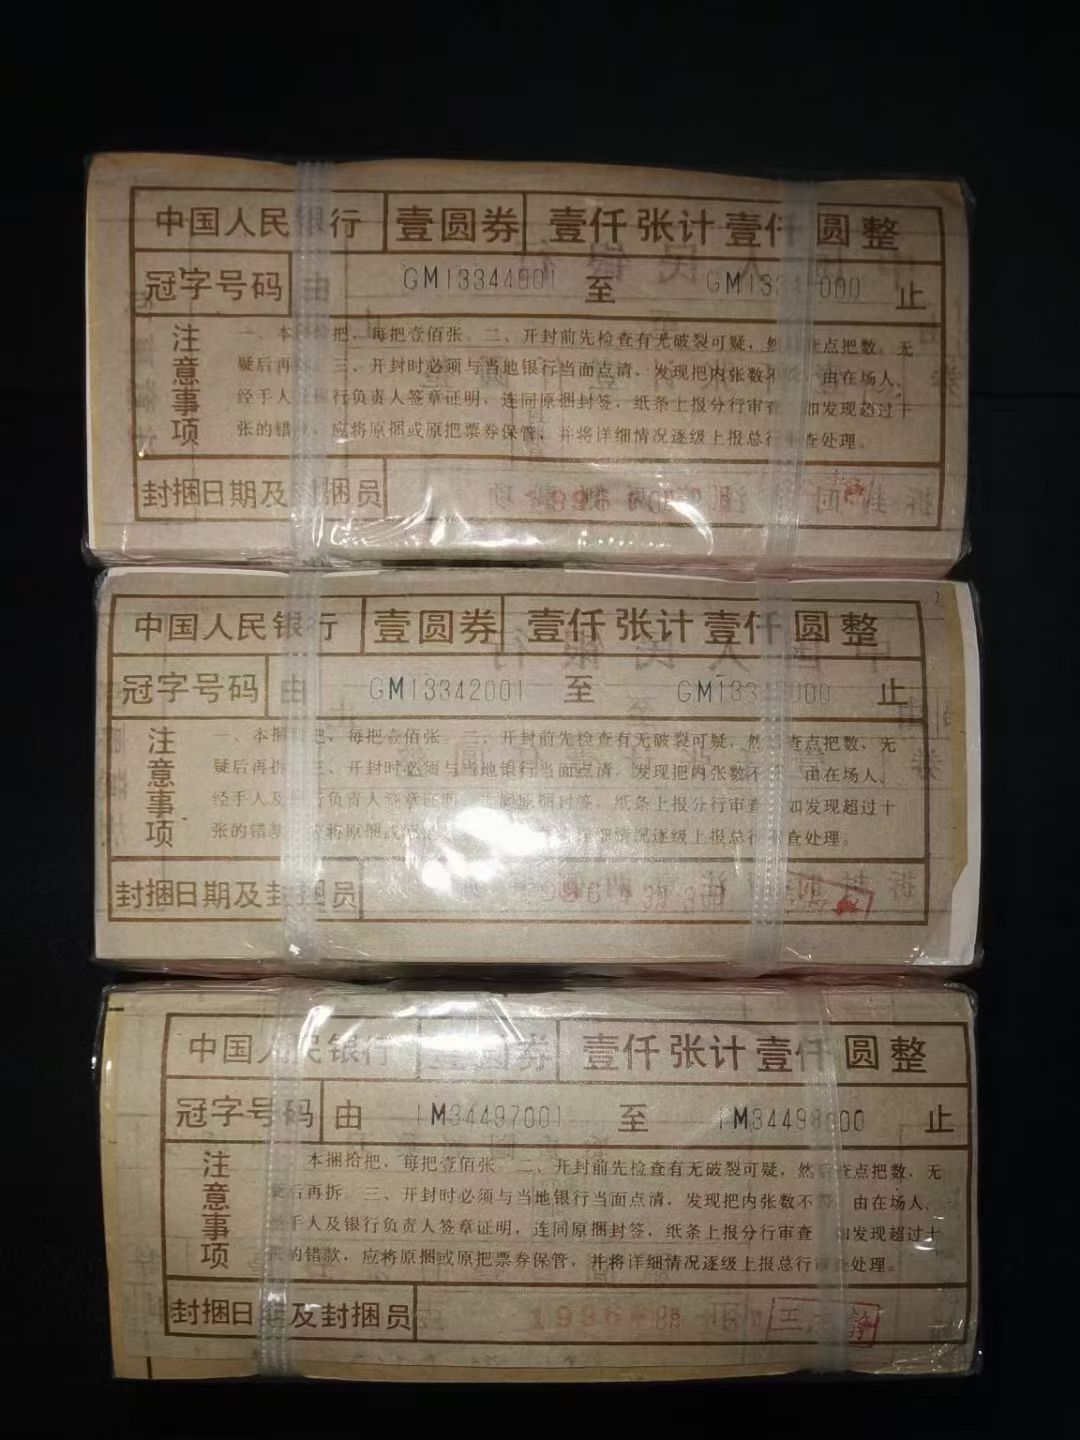 中国人民银行 壹圆券 壹仟张计壹仟圆整
冠字号码 由 GM13344001 至 GM133 000 止
注意事项
一、本 把，每把壹佰张。二、开封前先检查有无破裂可疑，然 查点把数，无
疑后再 三、开封时必须与当地银行当面点清，发现把内张数不 由在场人、
经手人 银行负责人签章证明，连同原捆封签，纸条上报分行审查 如发现超过十
张的错 应将原捆或原把票券保管，并将详细情况逐级上报总行 查处理。
封捆日期及封捆员 199
中国人民银行 壹圆券 壹仟张计壹仟圆整
冠字号码 由 GM13342001 至 GM133 000 止
注意事项
一、本捆 把，每把壹佰张。二、开封前先检查有无破裂可疑，然 查点把数，无
疑后再拆。三、开封时必须与当地银行当面点清，发现把内张数不 由在场人、
经手人及 行负责人签章证明 连同原捆封签，纸条上报分行审查 如发现超过十
张的错款 应将原捆或 详细情况逐级上报总行 查处理。
封捆日期及封捆员 996
中国人民银行 壹圆券 壹仟张计壹仟圆整
冠字号码 由 IM34497001 至 IM34498000 止
注意事项
本捆拾把，每把壹佰张。二、开封前先检查有无破裂可疑，然 查点把数，无
疑后再拆。三、开封时必须与当地银行当面点清，发现把内张数不 由在场人、
经手人及银行负责人签章证明，连同原捆封签，纸条上报分行审查 如发现超过十
张的错款，应将原捆或原把票券保管，并将详细情况逐级上报总行 查处理。
封捆日期及封捆员 1996 王 静